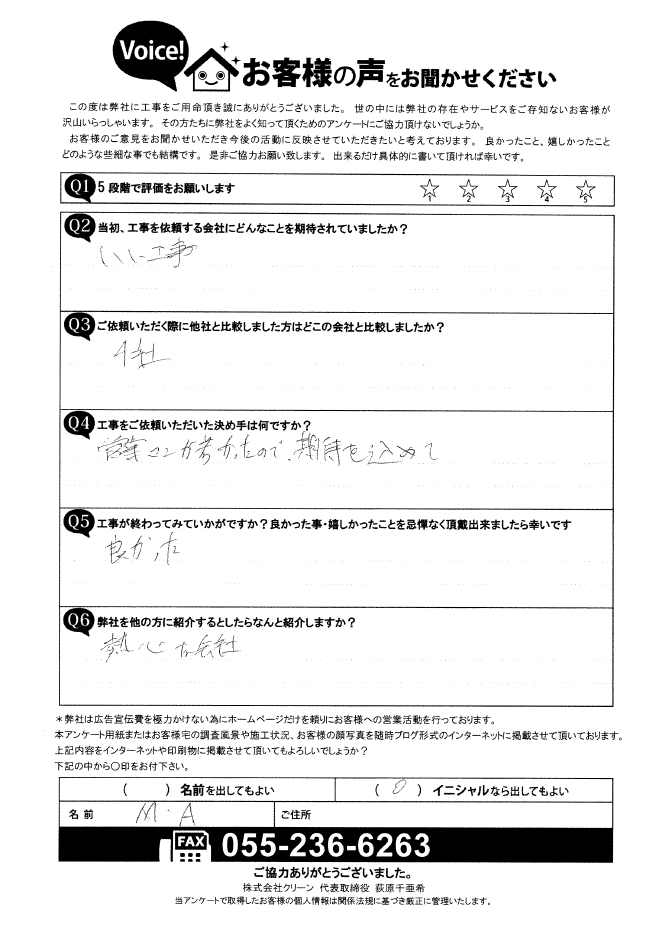 Voice!
お客様の声をお聞かせください
この度は弊社に工事をご用命頂き誠にありがとうございました。 世の中には弊社の存在やサービスをご存知ないお客様が
沢山いらっしゃいます。 その方たちに弊社をよく知って頂くためのアンケートにご協力頂けないでしょうか。
お客様のご意見をお聞かせいただき今後の活動に反映させていただきたいと考えております。 良かったこと、嬉しかったこと
どのような些細な事でも結構です。 是非ご協力お願い致します。 出来るだけ具体的に書いて頂ければ幸いです。
Q1 5段階で評価をお願いします
1 2 3 4 5
Q2 当初、工事を依頼する会社にどんなことを期待されていましたか？
いい工事
Q3 ご依頼いただく際に他社と比較しました方はどこの会社と比較しましたか？
4社
Q4 工事をご依頼いただいた決め手は何ですか？
営業マンが かったので、期待を込めて
Q5 工事が終わってみていかがですか？良かった事・嬉しかったことを忌憚なく頂戴出来ましたら幸いです
良かった
Q6 弊社を他の方に紹介するとしたらなんと紹介しますか？
熱心な会社
＊弊社は広告宣伝費を極力かけない為にホームページだけを頼りにお客様への営業活動を行っております。
本アンケート用紙またはお客様宅の調査風景や施工状況、お客様の顔写真を随時ブログ形式のインターネットに掲載させて頂いております。
上記内容をインターネットや印刷物に掲載させて頂いてもよろしいでしょうか？
下記の中から〇印をお付下さい。
（ ）名前を出してもよい （ 〇 ）イニシャルなら出してもよい
名前 M・A ご住所
FAX 055-236-6263
ご協力ありがとうございました。
株式会社クリーン 代表取締役 荻原千亜希
当アンケートで取得したお客様の個人情報は関係法規に基づき厳正に管理いたします。